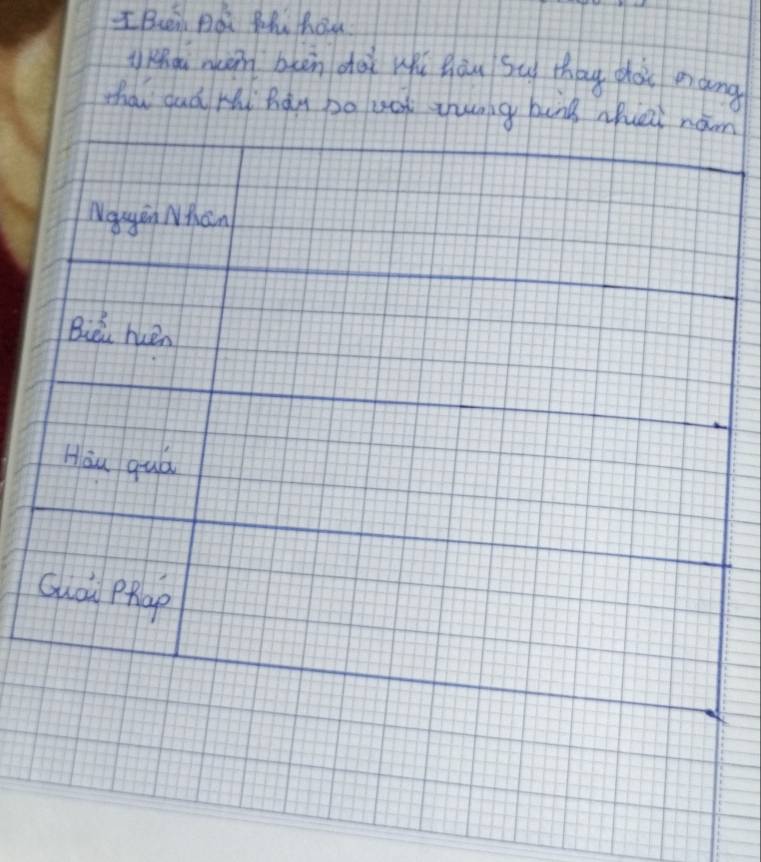 I Biến Đổi khí hậu
1) Khái niệm biến đổi khí hậu Sự thay đổi trạng
thái của khí hậu so với trung bình nhiều năm
Nguyên Nhân
Biểu hiện
Hậu quả
Giải Pháp